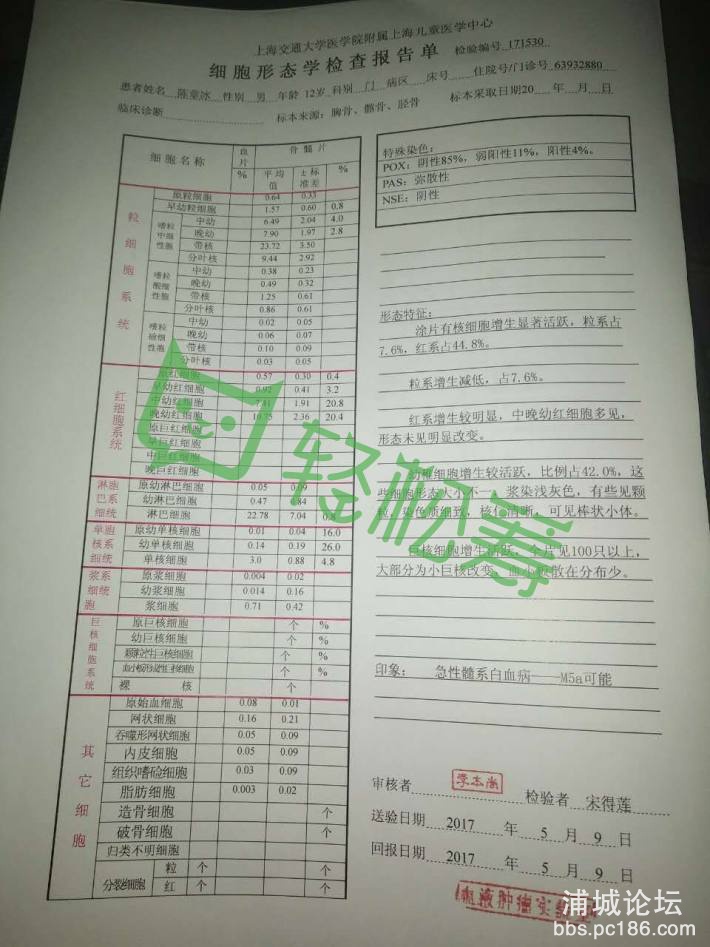 上海交通大学医学院附属上海儿童医学中心
细胞形态学检查报告单 检验编号 171530
患者姓名 陈童冰 性别 男 年龄 12岁 科别 门 病区 床号 住院号/门诊号 63932880
临床诊断 标本来源：胸骨、髂骨、胫骨 标本采取日期20 年 月 日
细胞名称 血片 骨髓片
% 平均值 ±标准差 %
粒细胞系统
原粒细胞 0.64 0.33
早幼粒细胞 1.57 0.60 0.8
嗜粒中细性胞 中幼 6.49 2.04 4.0
晚幼 7.90 1.97 2.8
带核 23.72 3.50
分叶核 9.44 2.92
嗜粒酸细性胞 中幼 0.38 0.23
晚幼 0.49 0.32
带核 1.25 0.61
分叶核 0.86 0.61
嗜粒硷细性胞 中幼 0.02 0.05
晚幼 0.06 0.07
带核 0.10 0.09
分叶核 0.03 0.05
红细胞系统
原红细胞 0.57 0.30 0.4
早幼红细胞 0.92 0.41 3.2
中幼红细胞 7.41 1.91 20.8
晚幼红细胞 10.75 2.36 20.4
原巨红细胞
早巨红细胞
中巨红细胞
晚巨红细胞
淋胞巴系细统
原幼淋巴细胞 0.05 0.09
幼淋巴细胞 0.47 0.84
淋巴细胞 22.78 7.04 0.8
单胞核系细统
原幼单核细胞 0.01 0.04 16.0
幼单核细胞 0.14 0.19 26.0
单核细胞 3.0 0.88 4.8
浆系细统胞
原浆细胞 0.004 0.02
幼浆细胞 0.014 0.16
浆细胞 0.71 0.42
巨核细胞系统
原巨细胞 个 %
幼巨细胞 个 %
颗粒性巨细胞 个 %
血小板形成性巨细胞 个 %
裸核 个
其它细胞
原始血细胞 0.08 0.01
网状细胞 0.16 0.21
吞噬形网状细胞 0.05 0.09
内皮细胞 0.05 0.09
组织嗜硷细胞 0.03 0.09
脂肪细胞 0.003 0.02
造骨细胞 个
破骨细胞 个
归类不明细胞
分裂细胞 粒 个 个
红 个 个
特殊染色：
POX：阴性85%，弱阳性11%，阳性4%。
PAS：弥散性
NSE：阴性
形态特征：
涂片有核细胞增生显著活跃，粒系占
7.6%，红系占44.8%。
粒系增生减低，占7.6%。
红系增生较明显，中晚幼红细胞多见，
形态未见明显改变。
幼稚细胞增生较活跃，比例占42.0%，这
些细胞形态大小不一，浆染浅灰色，有些见颗
粒，染色质细致，核仁清晰，可见棒状小体。
巨核细胞增生活跃，全片见100只以上，
大部分为小巨核改变，血小板散在分布少。
印象： 急性髓系白血病——M5a可能
审核者 李本尚 检验者 宋得莲
送验日期 2017 年 5 月 9 日
回报日期 2017 年 5 月 9 日
血液肿瘤实验室
轻松筹
浦城论坛
bbs.pc186.com